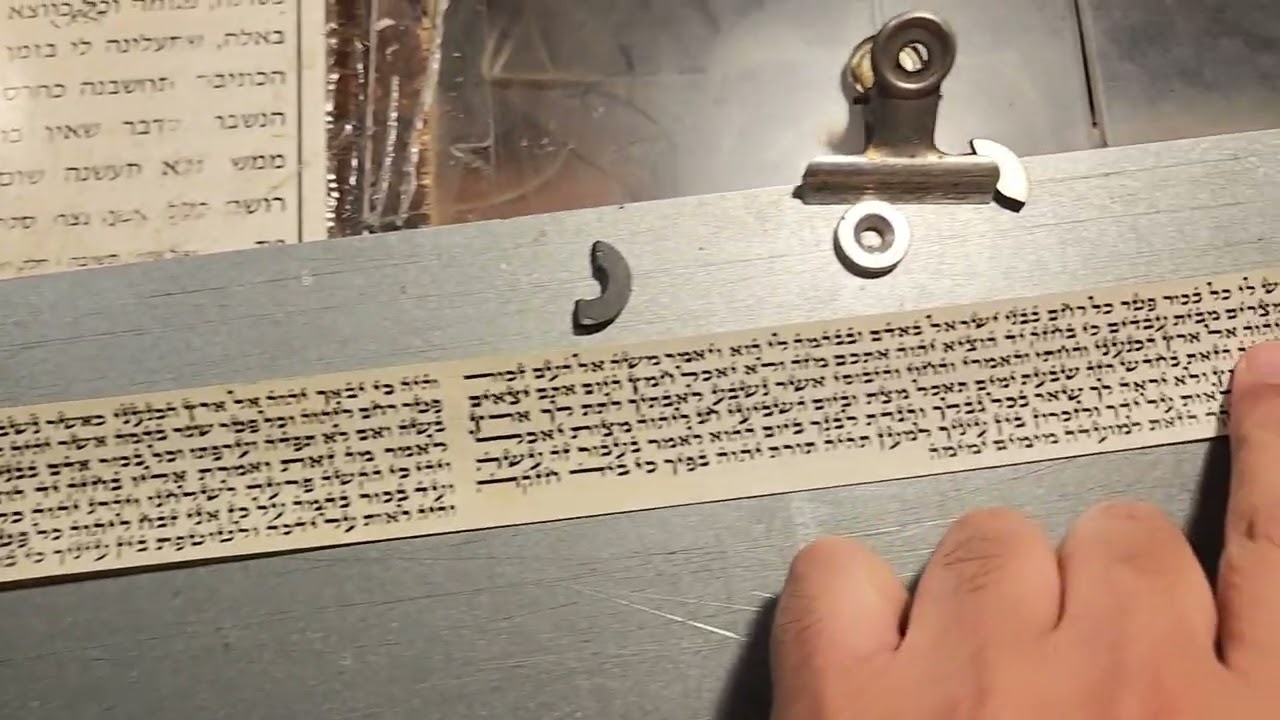 וכל כיוצא
באלה, שתעלינה לי בזמן
הכתיבה תחשבנה כחרס
הנשבר כדבר שאין בו
ממש ולא תעשנה שום
רושם כלל
ש לי כל בכור פטר כל רחם בבני ישראל באדם ובבהמה לי הוא ויאמר משה אל העם זכור
מצרים מבית עבדים כי בחזק יד הוציא יהוה אתכם מזה ולא יאכל חמץ היום אתם יצאים
יהוה אל ארץ הכנעני והחתי והאמרי והחוי והיבוסי אשר נשבע לאבתיך לתת לך ארץ
הזאת בחדש הזה שבעת ימים תאכל מצת וביום השביעי חג ליהוה מצות יאכל
ולא יראה לך שאר בכל גבלך והגדת לבנך ביום ההוא לאמר בעבור זה עשה
לאות על ידך ולזכרון בין עיניך למען תהיה תורת יהוה בפיך כי ביד חזקה
הזאת למועדה מימים ימימה
והיה כי יבאך יהוה אל ארץ הכנעני כאשר נשבע
פטר רחם ליהוה וכל פטר שגר בהמה אשר יהיה
בשה ואם לא תפדה וערפתו וכל בכור אדם
לאמר מה זאת ואמרת אליו בחזק יד
ויהי כי הקשה פרעה לשלחנו ויהרג יהוה כל
ועד בכור בהמה על כן אני זבח ליהוה כל פטר
והיה לאות על ידכה ולטוטפת בין עיניך כי